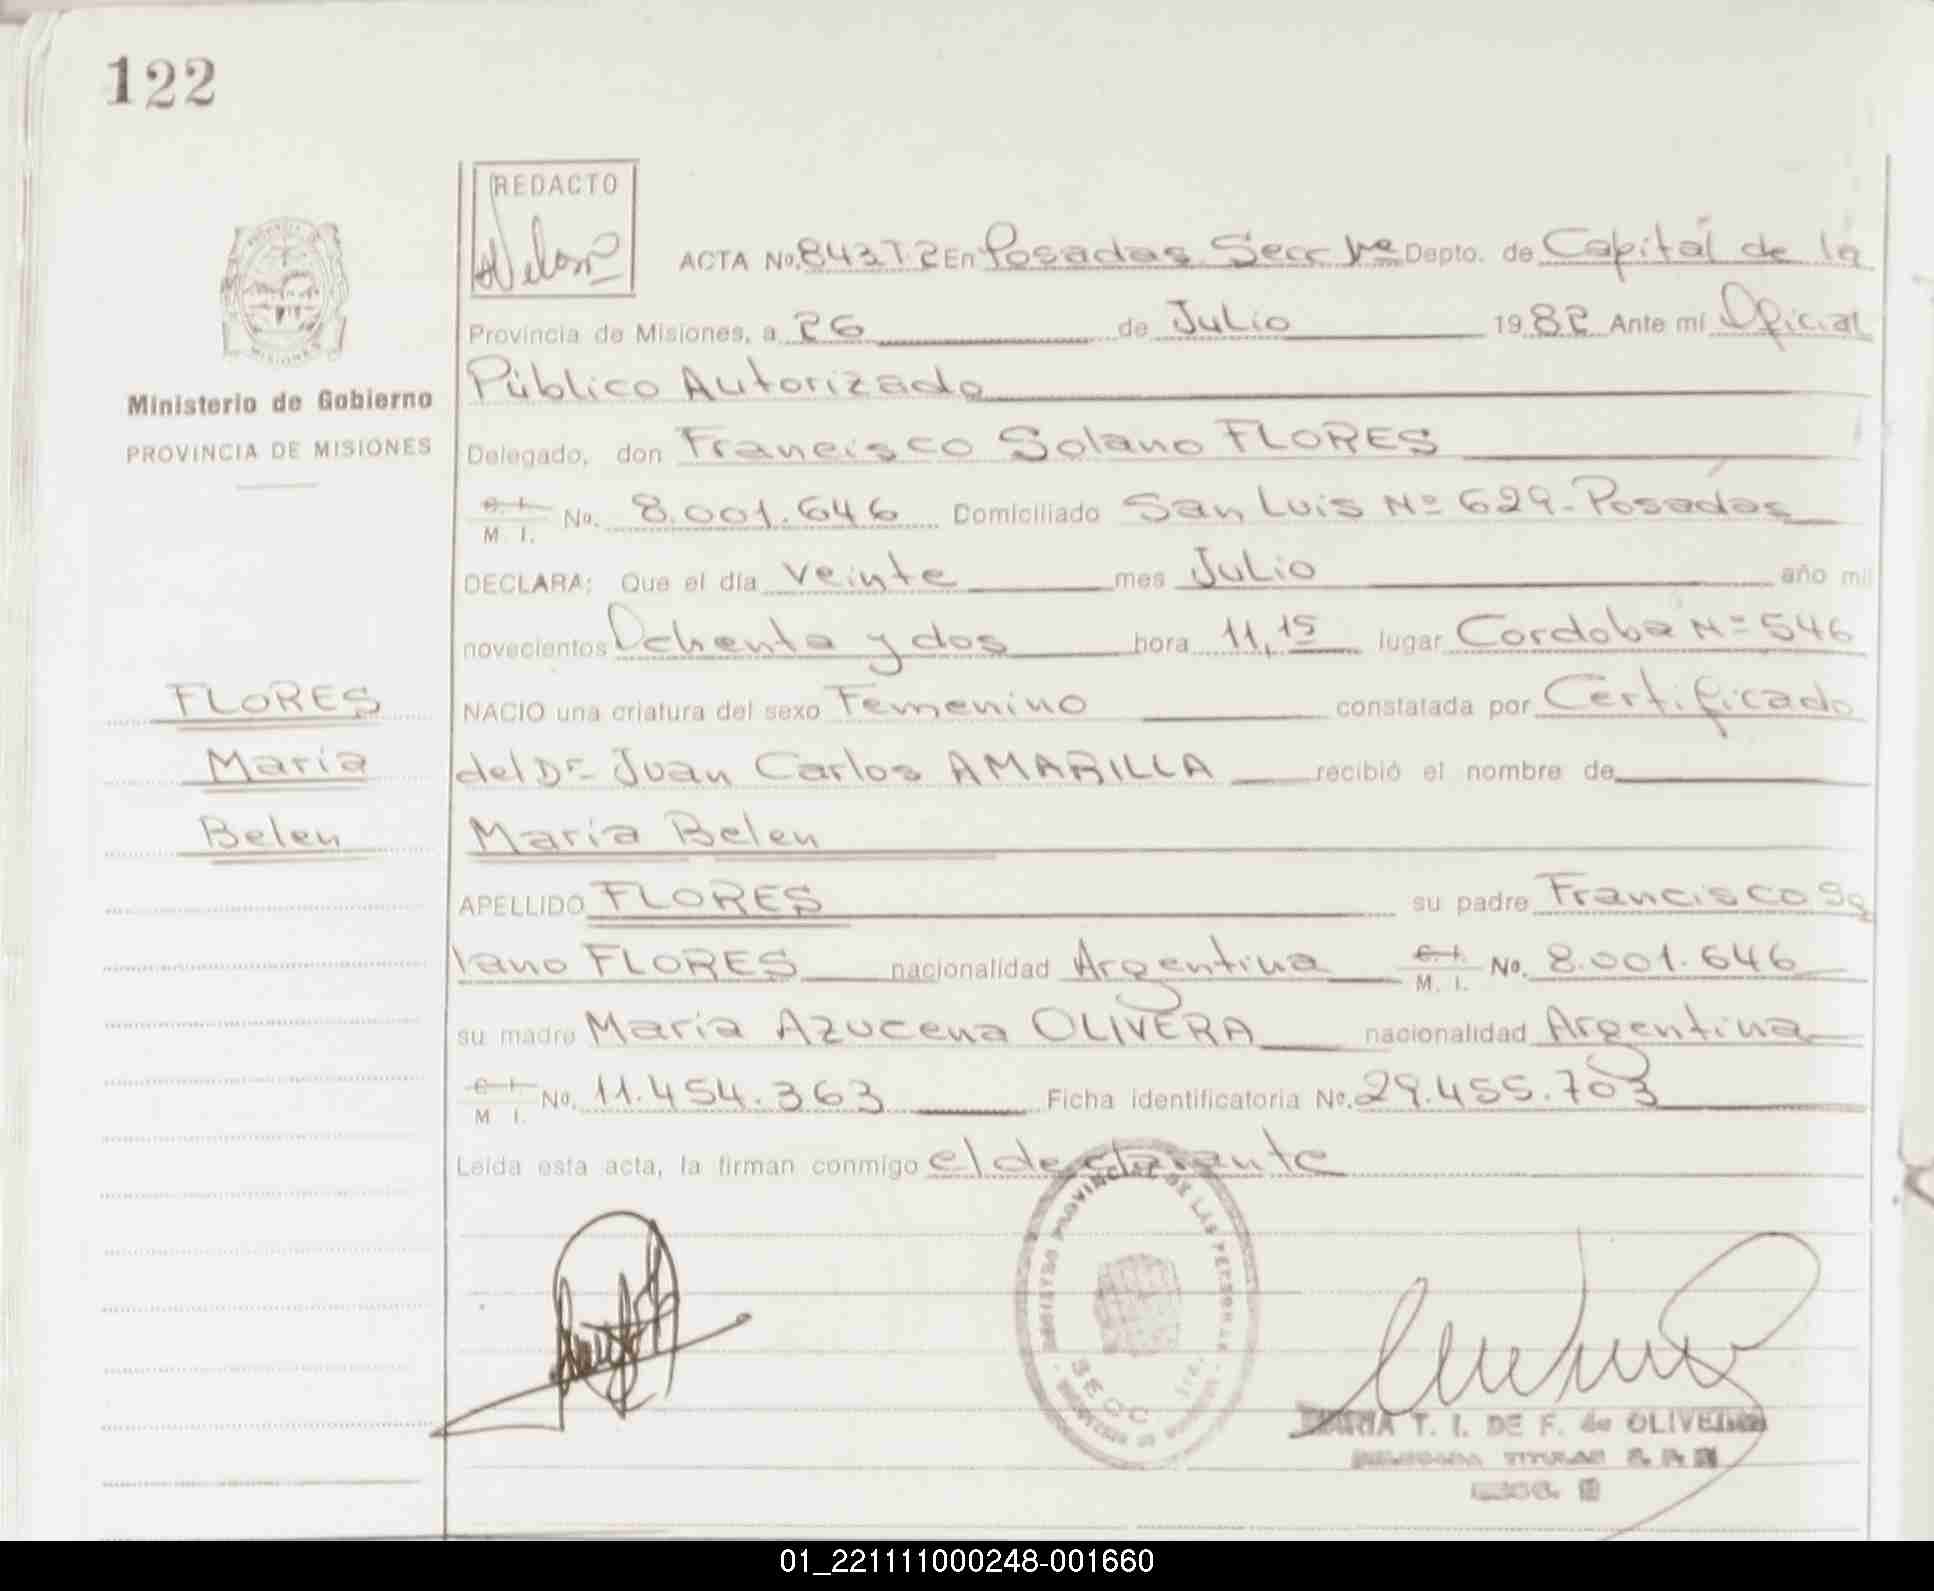 122
REDACTO
ACTA No. 843T2 En Posadas Secc 1ra Depto. de Capital de la
Provincia de Misiones, a 26 de Julio 1982 Ante mí Oficial
Público Autorizado
Ministerio de Gobierno
PROVINCIA DE MISIONES
Delegado, don Francisco Solano FLORES
C. I. / M. I. No. 8.001.646 Domiciliado San Luis Nº 629-Posadas
DECLARA: Que el día veinte mes Julio año mil
novecientos Ochenta y dos hora 11,15 lugar Cordoba Nº 546
FLORES
NACIO una criatura del sexo Femenino constatada por Certificado
María
del Dr Juan Carlos AMARILLA recibió el nombre de
Belen
María Belen
APELLIDO FLORES su padre Francisco So
lano FLORES nacionalidad Argentina C. I. / M. I. No. 8.001.646
su madre María Azucena OLIVERA nacionalidad Argentina
C. I. / M. I. No. 11.454.363 Ficha identificatoria No. 29.455.703
Leída esta acta, la firman conmigo el declarante
REGISTRO PROVINCIAL DE LAS PERSONAS
SECC 1ra.
T. I. DE F. de OLIVEIRA
TITULAR
01_221111000248-001660